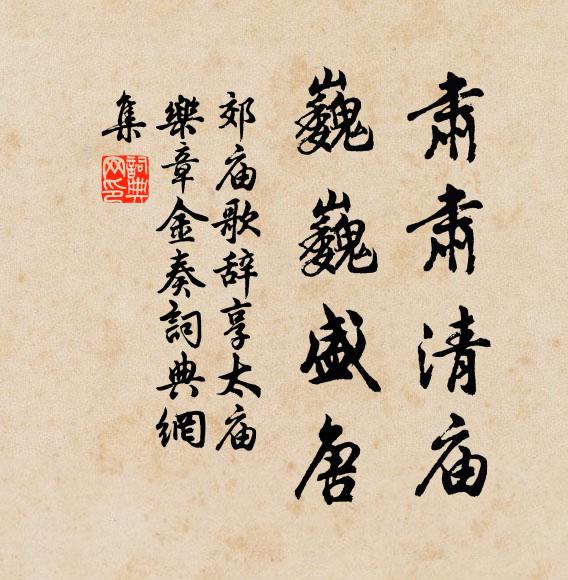 肅肅清庙
巍巍盛唐
郊庙歌辞享太庙
樂章金奏詞典網
集
詞典
网印